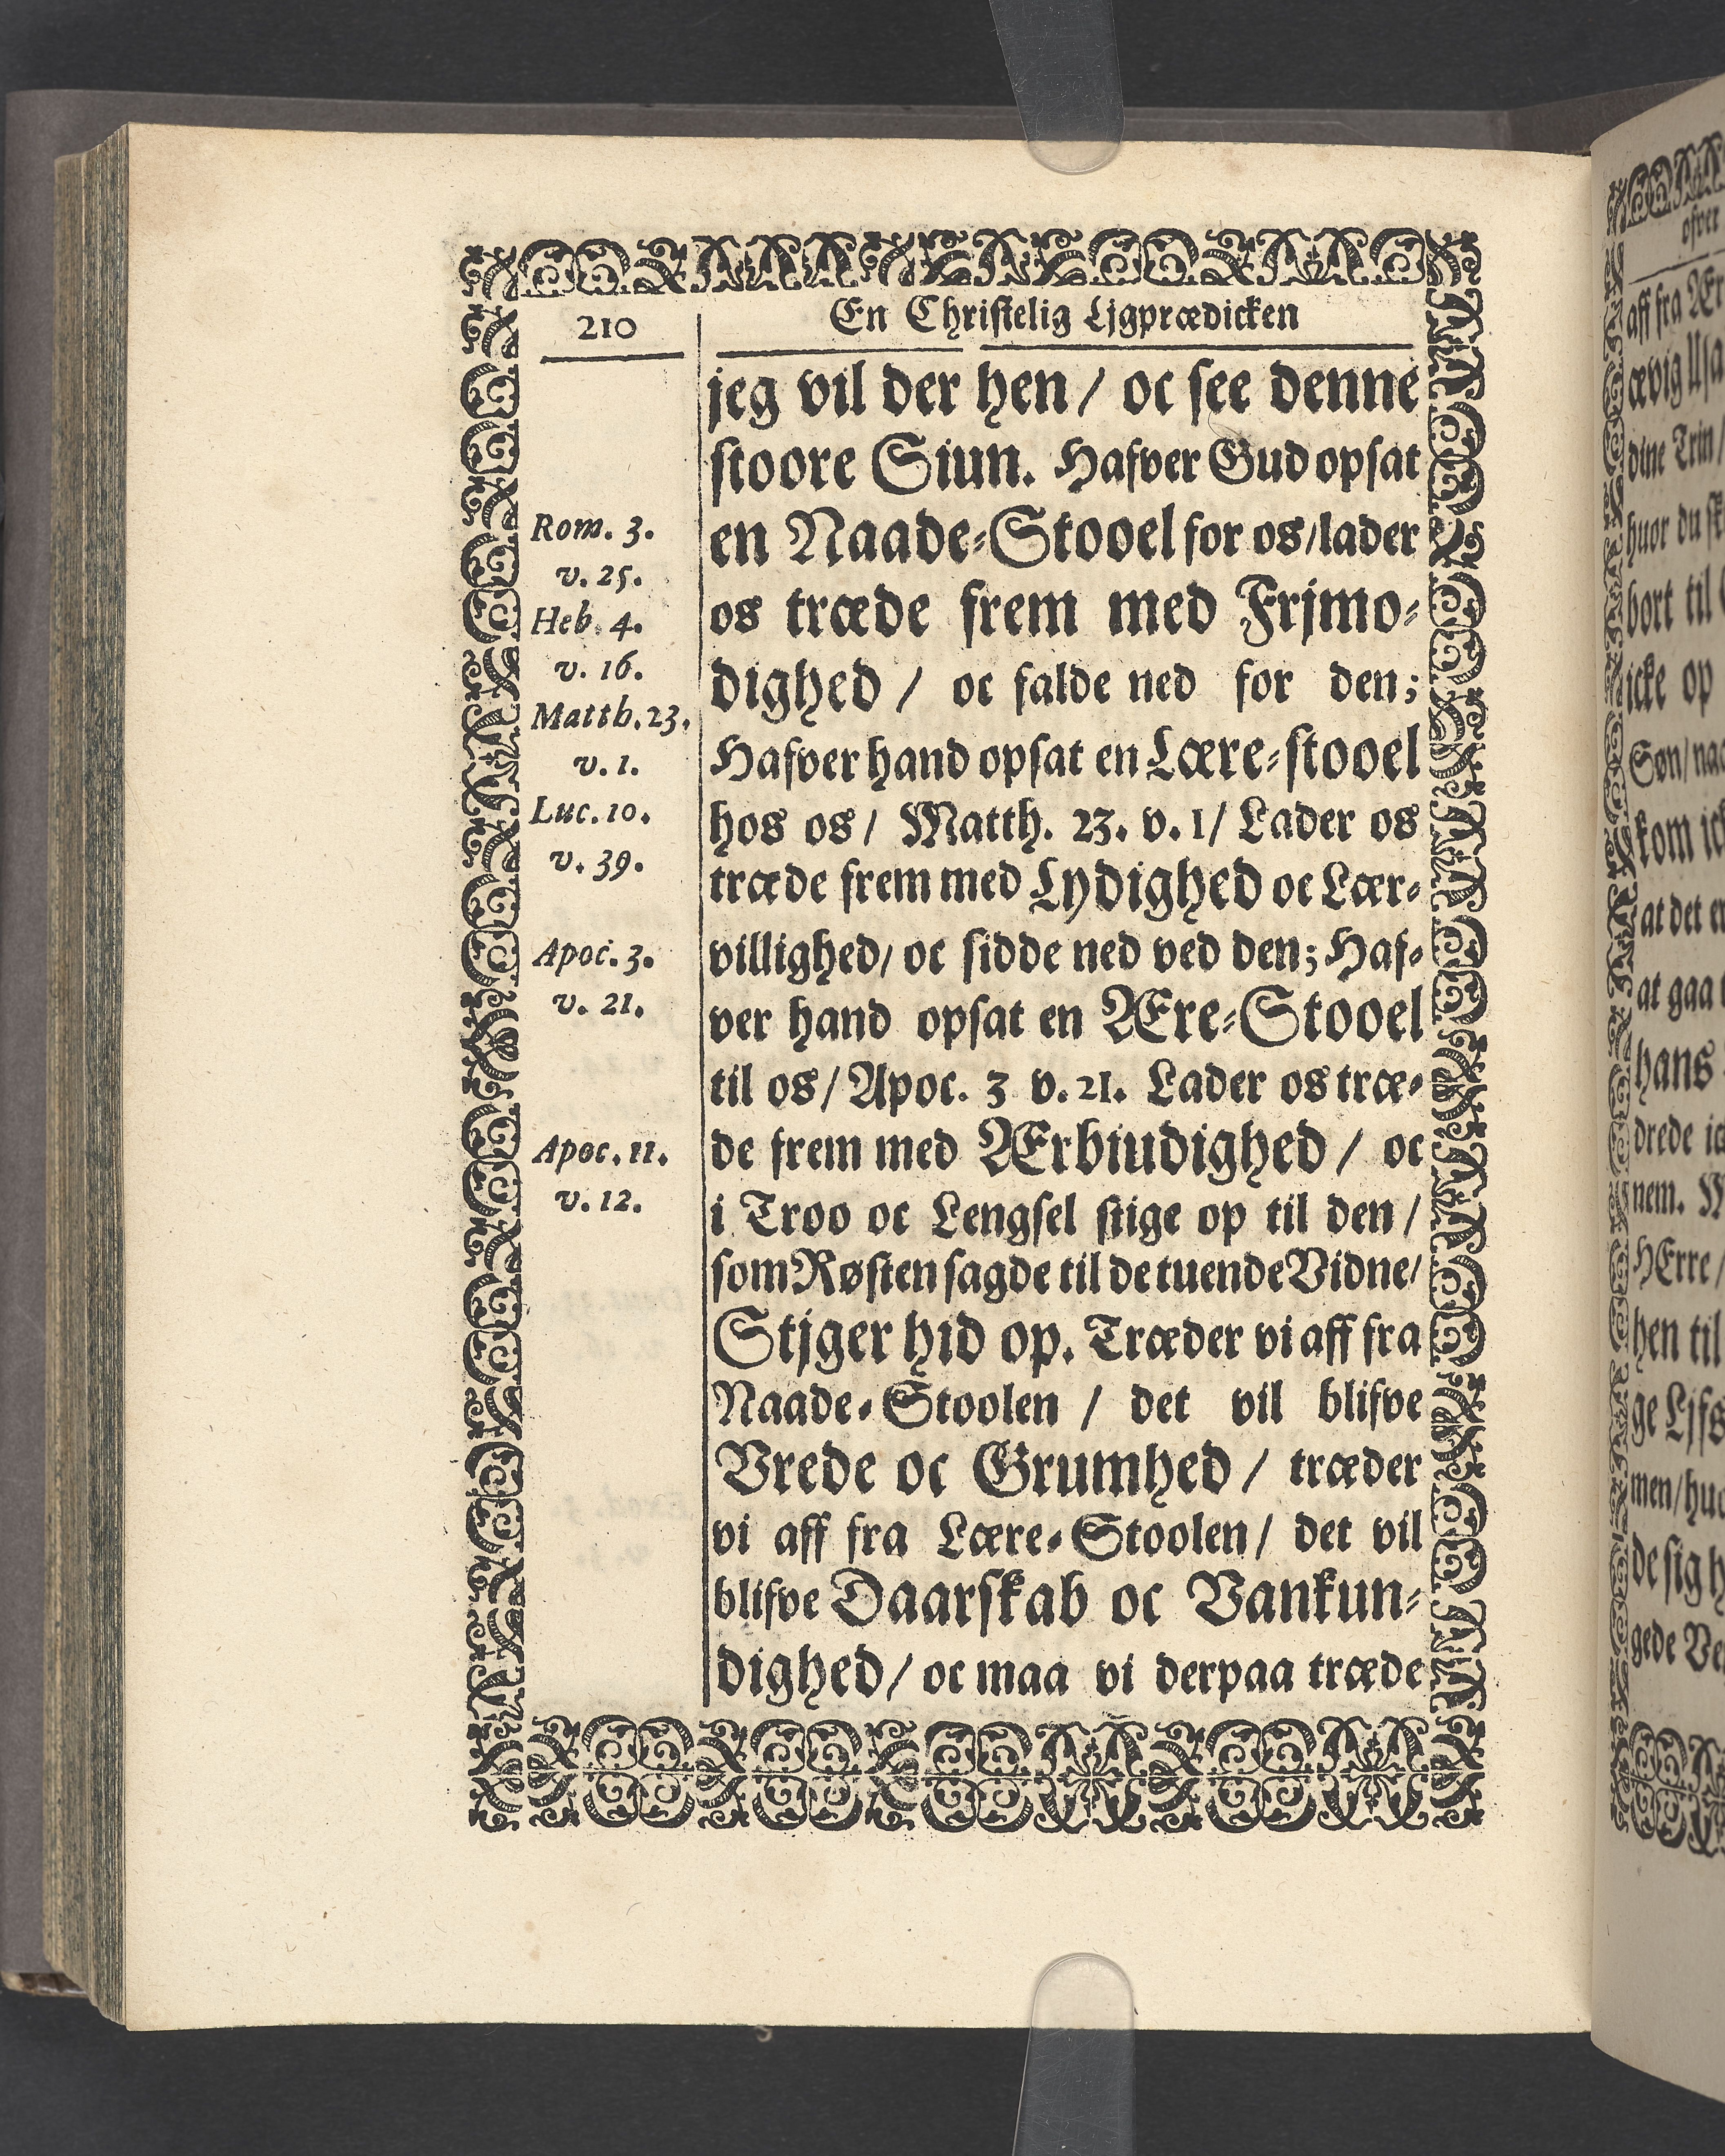 210
En Christelig Ljgprædicken
jeg vil der hen / oc see denne
stoore Siun. Hafver Gud opsat
en Naade-Stooel for os/lader
os træde frem med Frjmo-
dighed / oc falde ned for den;
Hafver hand opsat en Lære-stooel
hos os / Matth. 23. v. 1/ Lader os
træde frem med Lydighed oc Lær-
villighed/ oc sidde ned ved den; Haf-
ver hand opsat en Ære-Stooel
til os / Apoc. 3 v. 21. Lader os træ-
de frem med Ærbiudighed / oc
i Troo oc Lengsel stige op til den /
som Røsten sagde til de tuende Vidne/
Stjger hid op. Træder vi aff fra
Naade-Stoolen / det vil blifve
Vrede oc Grumhed / træder
vi aff fra Lære-Stoolen / det vil
blifve Daarskab oc Vankun-
dighed / oc maa vi derpaa træde
Rom. 3.
v. 25.
Heb. 4.
v. 16.
Matth. 23.
v. 1.
Luc. 10.
v. 39.
Apoc. 3.
v. 21.
Apoc. 11.
v. 12.
ofver
aff fra
ævig
dine Trin /
huor du
bort til
icke op
Søn / 
kom
at det
at gaa
hans
drede
nem.
HErre /
hen til
ge
men /
de sig
gede